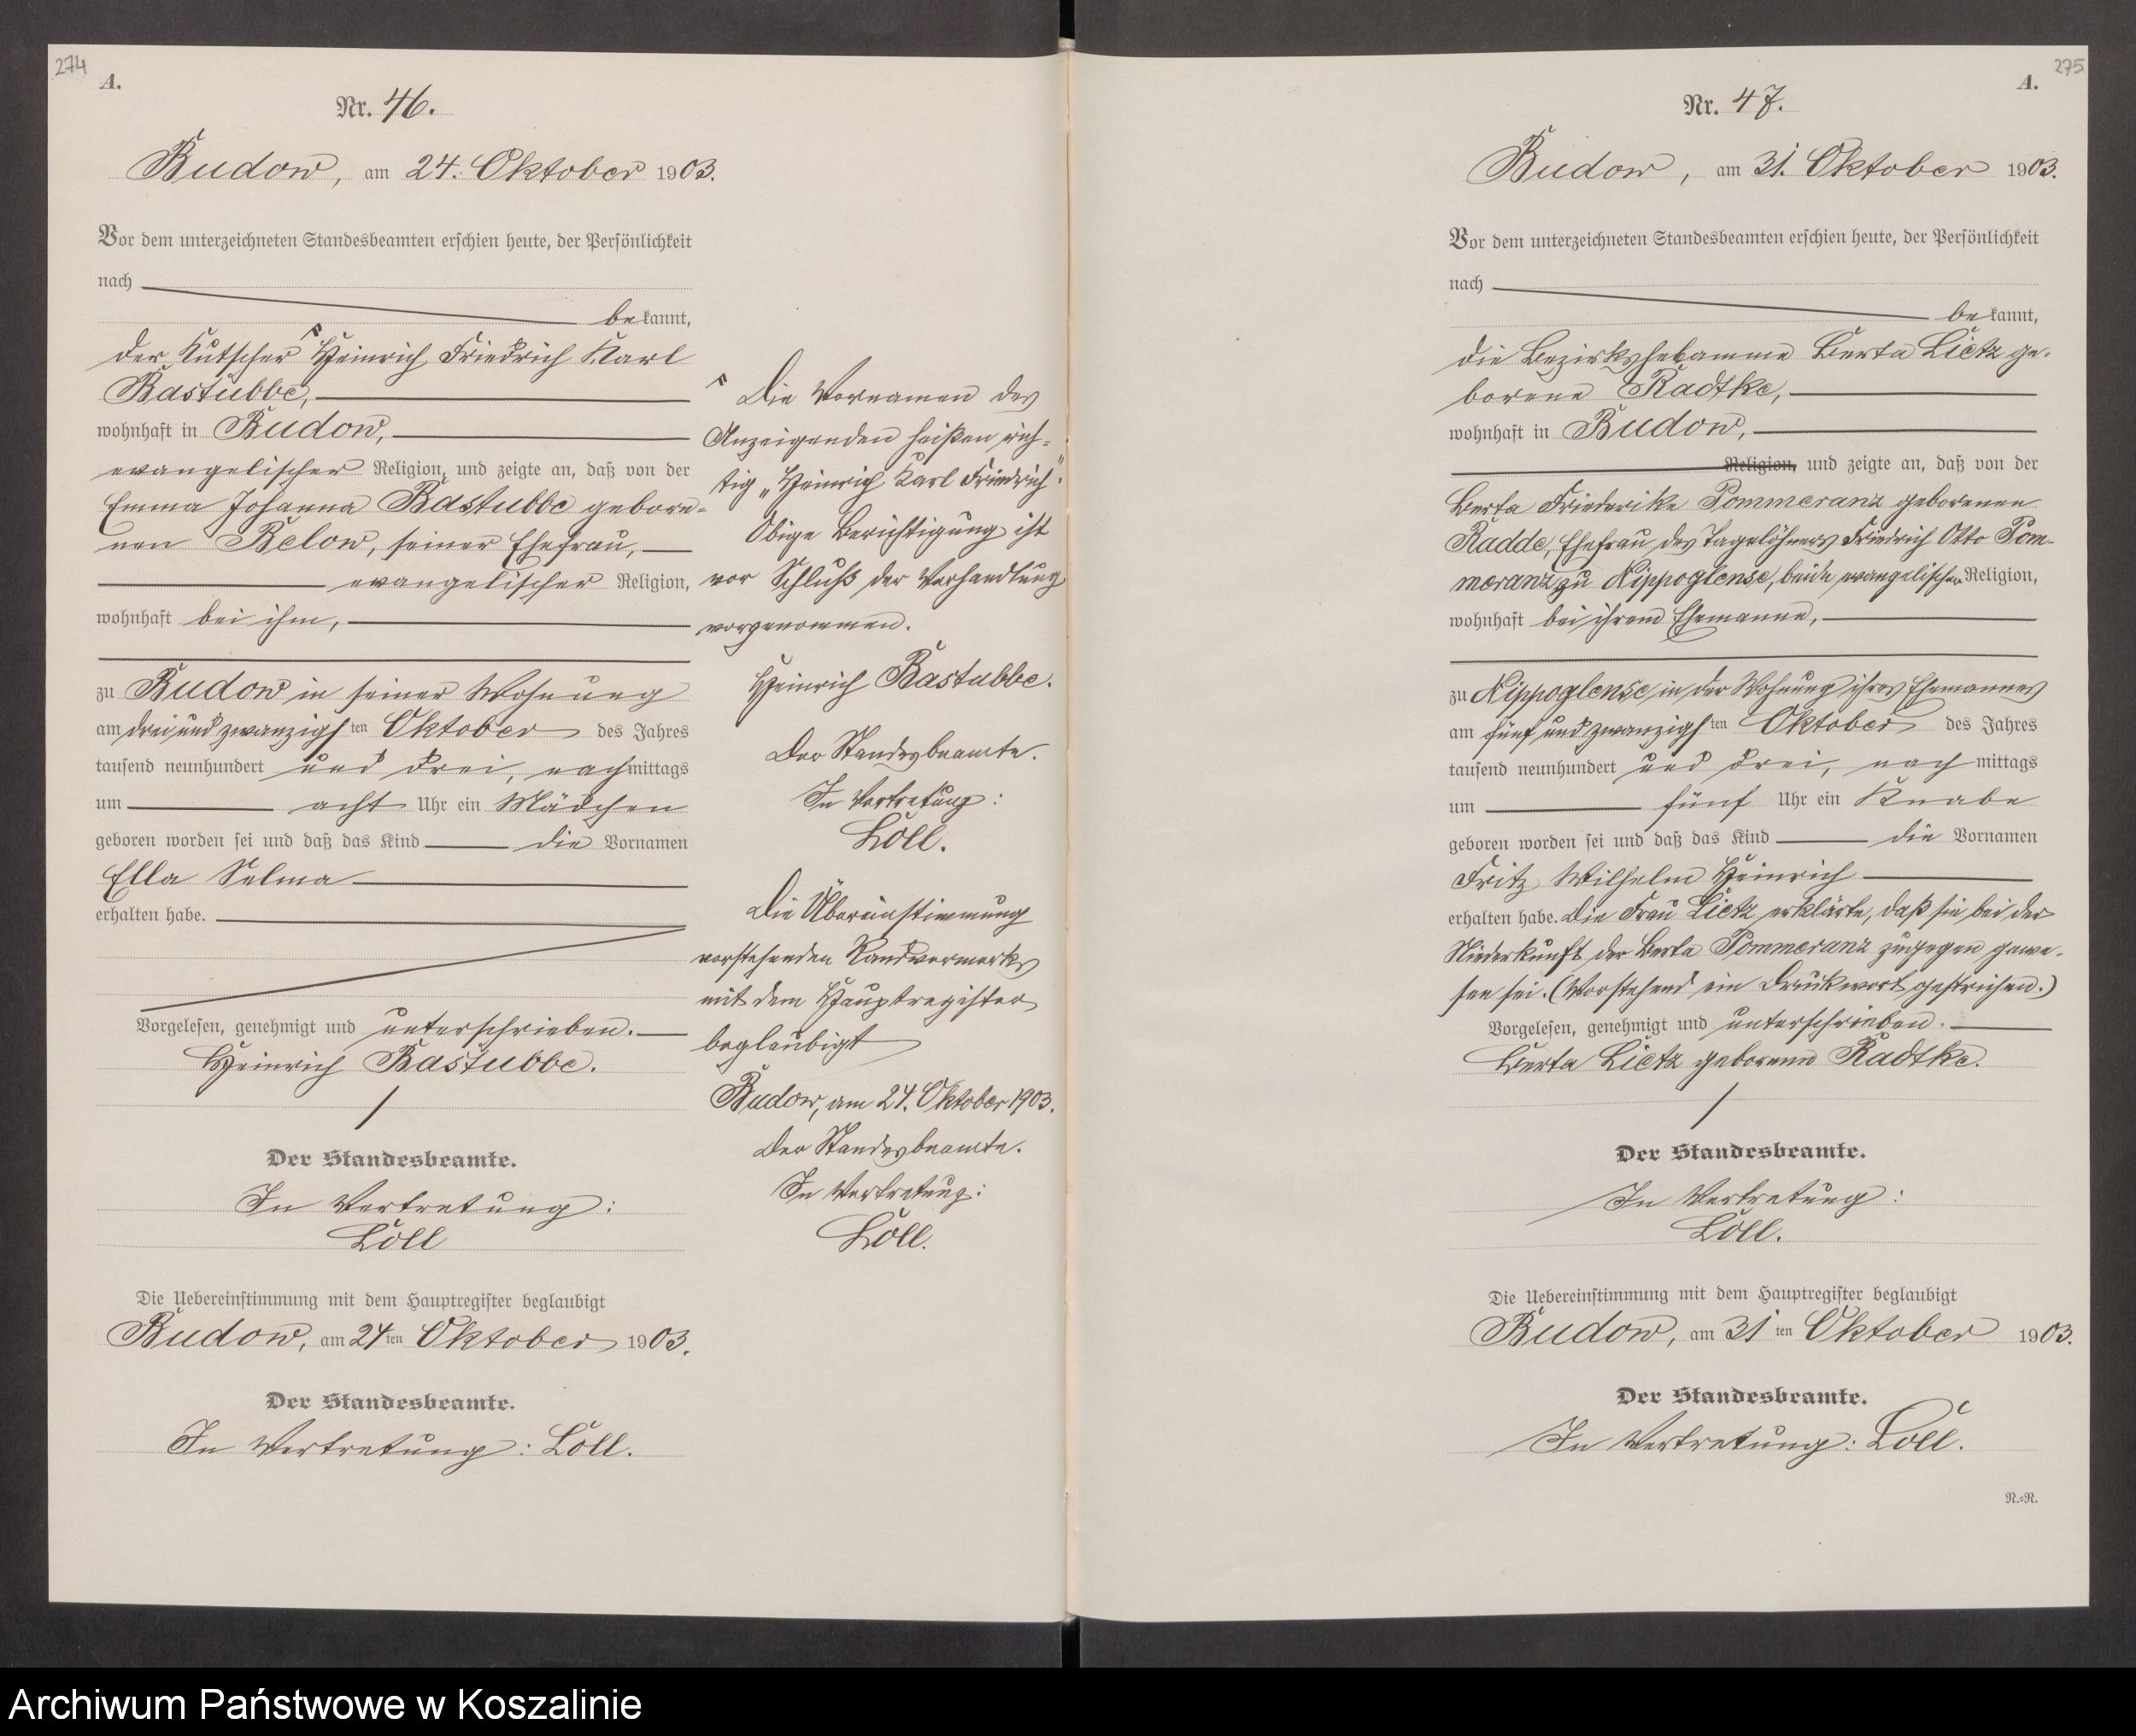 274
A.
Nr. 46.
Budow, am 24. Oktober 1903.
Vor dem unterzeichneten Standesbeamten erschien heute, der Persönlichkeit
nach
bekannt,
der Kutscher Heinrich Friedrich Karl
Bastubbe,
wohnhaft in Budow,
evangelischer Religion, und zeigte an, daß von der
Emma Johanna Bastubbe gebore-
nen Below, seiner Ehefrau,
evangelischer Religion,
wohnhaft bei ihm,
zu Budow in seiner Wohnung
am dreiundzwanzigsten Oktober des Jahres
tausend neunhundert und drei, nachmittags
um acht Uhr ein Mädchen
geboren worden sei und daß das Kind die Vornamen
Ella Selma
erhalten habe.
Vorgelesen, genehmigt und unterschrieben.
Heinrich Bastubbe.
Der Standesbeamte.
In Vertretung:
Löll
Die Uebereinstimmung mit dem Hauptregister beglaubigt
Budow, am 24ten Oktober 1903.
Der Standesbeamte.
In Vertretung: Löll.
Die Vornamen des
Anzeigenden heißen rich-
tig „Heinrich Karl Friedrich".
Obige Berichtigung ist
vor Schluß der Verhandlung
vorgenommen.
Heinrich Bastubbe.
Der Standesbeamte.
In Vertretung:
Löll.
Die Übereinstimmung
vorstehenden Randvermerks
mit dem Hauptregister
beglaubigt
Budow, am 24. Oktober 1903.
Der Standesbeamte.
In Vertretung:
Löll.
275
A.
Nr. 47.
Budow, am 31. Oktober 1903.
Vor dem unterzeichneten Standesbeamten erschien heute, der Persönlichkeit
nach
bekannt,
die Bezirkshebamme Berta Lietz ge-
borene Radtke,
wohnhaft in Budow,
Religion, und zeigte an, daß von der
Berta Friederike Pommeranz geborenen
Radde, Ehefrau des Tagelöhners Friedrich Otto Pom-
meranz zu Nippoglense, beide evangelischer Religion,
wohnhaft bei ihrem Ehemanne,
zu Nippoglense in der Wohnung ihres Ehemannes
am fünfundzwanzigsten Oktober des Jahres
tausend neunhundert und drei, nachmittags
um fünf Uhr ein Knabe
geboren worden sei und daß das Kind die Vornamen
Fritz Wilhelm Heinrich
erhalten habe. Die Frau Lietz erklärte, daß sie bei der
Niederkunft der Berta Pommeranz zugegen gewe-
sen sei. (Vorstehend ein Druckwort gestrichen.)
Vorgelesen, genehmigt und unterschrieben.
Berta Lietz geborene Radtke.
Der Standesbeamte.
In Vertretung:
Löll.
Die Uebereinstimmung mit dem Hauptregister beglaubigt
Budow, am 31ten Oktober 1903.
Der Standesbeamte.
In Vertretung: Löll.
N.=N.
Archiwum Państwowe w Koszalinie